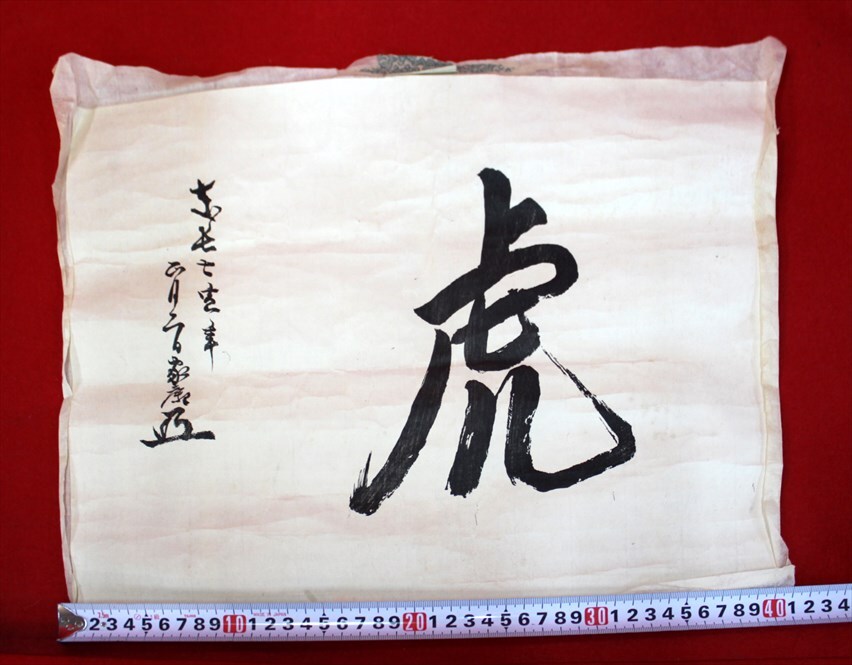 虎
慶長七寅年
正月二日家康
2 3 4 5 6 7 8 9 10 1 2 3 4 5 6 7 8 9 20 1 2 3 4 5 6 7 8 9 30 1 2 3 4 5 6 7 8 9 40 1 2 3 4